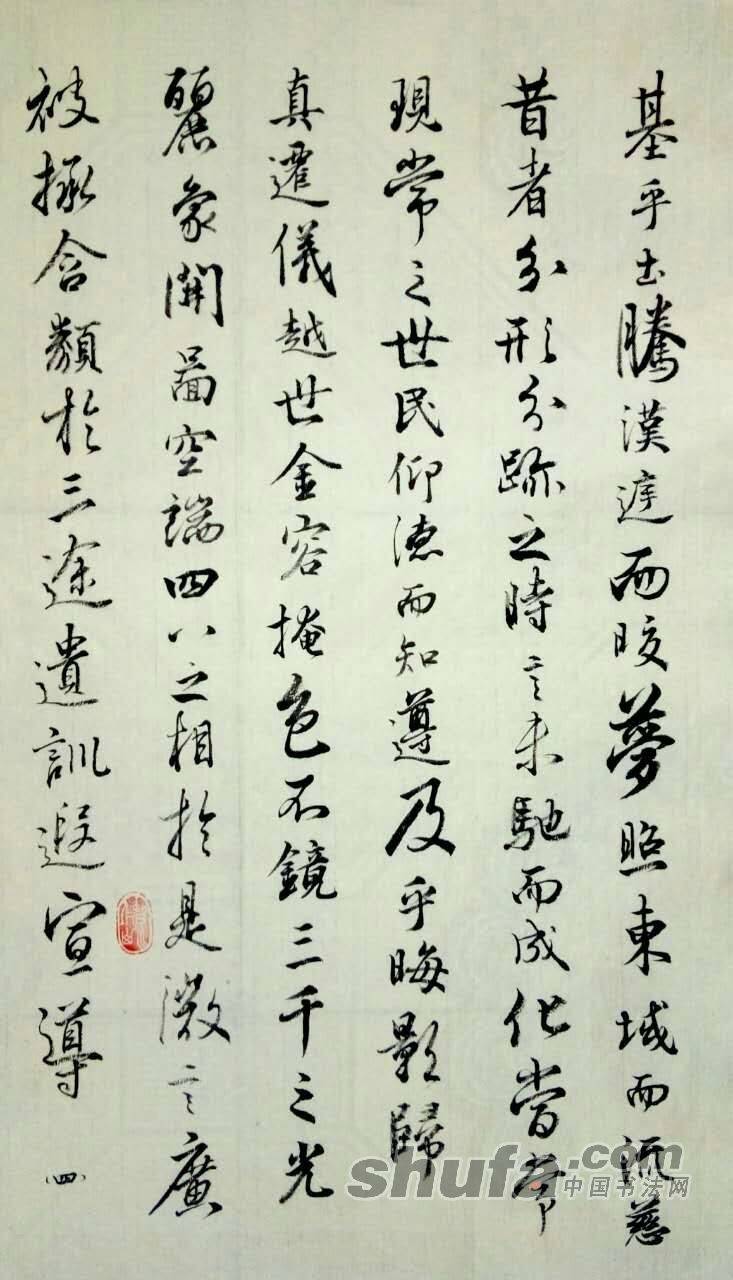 基乎土騰漢庭而皎夢照東域而流慈
昔者分形分跡之時言未馳而成化當常
現常之世民仰德而知遵及乎晦影歸
真遷儀越世金容掩色不鏡三千之光
麗象開圖空端四八之相於是微言廣
被拯含類於三途遺訓遐宣導
四
shufa.com
中国书法网